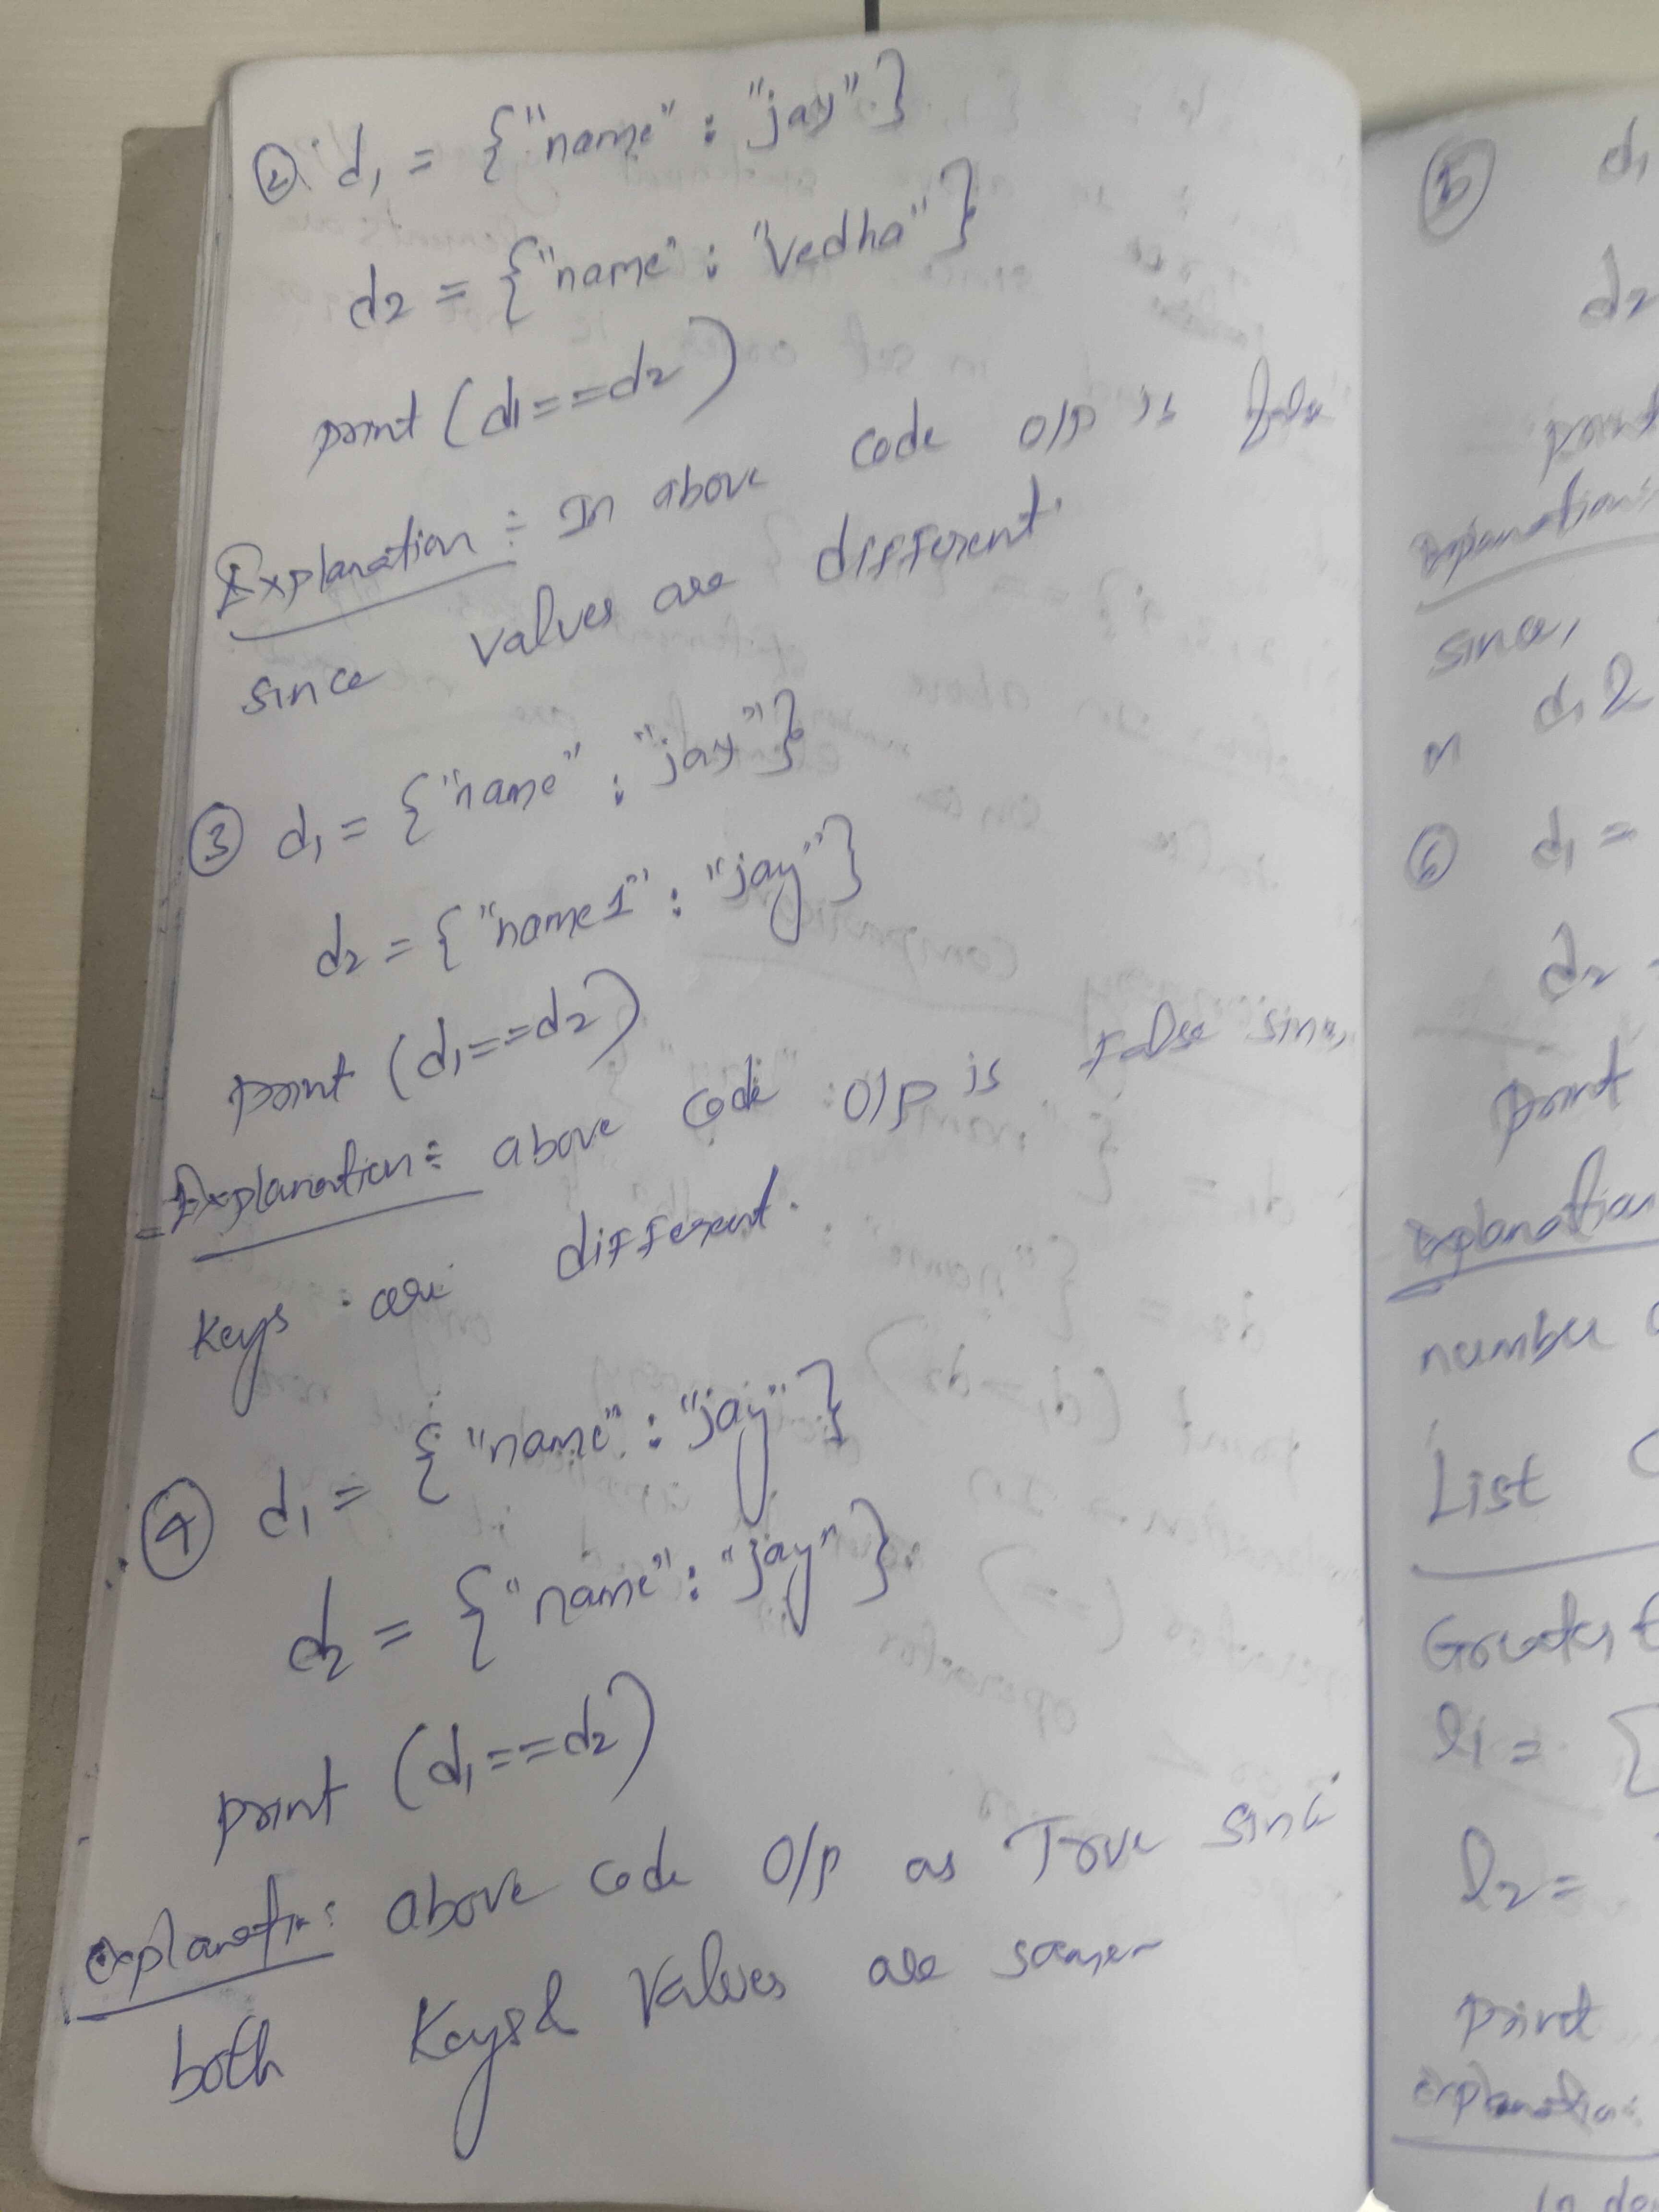 ② d1 = {"name" : "jay"}
d2 = {"name" : "Vedha"}
print (d1==d2)
Explanation : In above code o/p is false
since values are different.
③ d1 = {"name" : "jay"}
d2 = {"name1" : "jay"}
print (d1==d2)
Explanation : above code o/p is False since,
keys are different.
④ d1 = {"name" : "jay"}
d2 = {"name" : "jay"}
print (d1==d2)
explanation : above code o/p as True since
both Keys & Values are same
⑤ d1
d2
print
explanation:
since,
d1 &
⑥ d1 =
d2 =
print
explanation
number
List
Greater
l1 = [
l2 =
print
explanation:
In